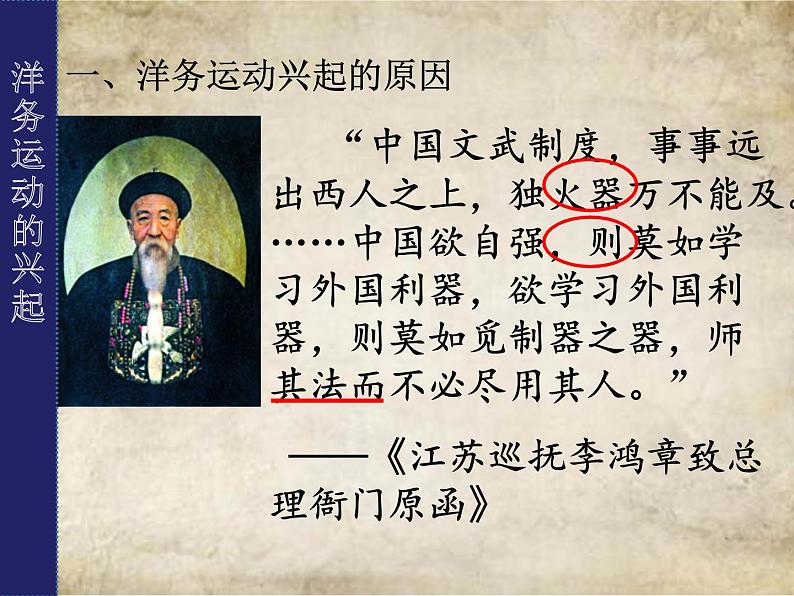 洋务运动的兴起
一、洋务运动兴起的原因
“中国文武制度，事事远
出西人之上，独火器万不能及。
……中国欲自强，则莫如学
习外国利器，欲学习外国利
器，则莫如觅制器之器，师
其法而不必尽用其人。”
——《江苏巡抚李鸿章致总
理衙门原函》